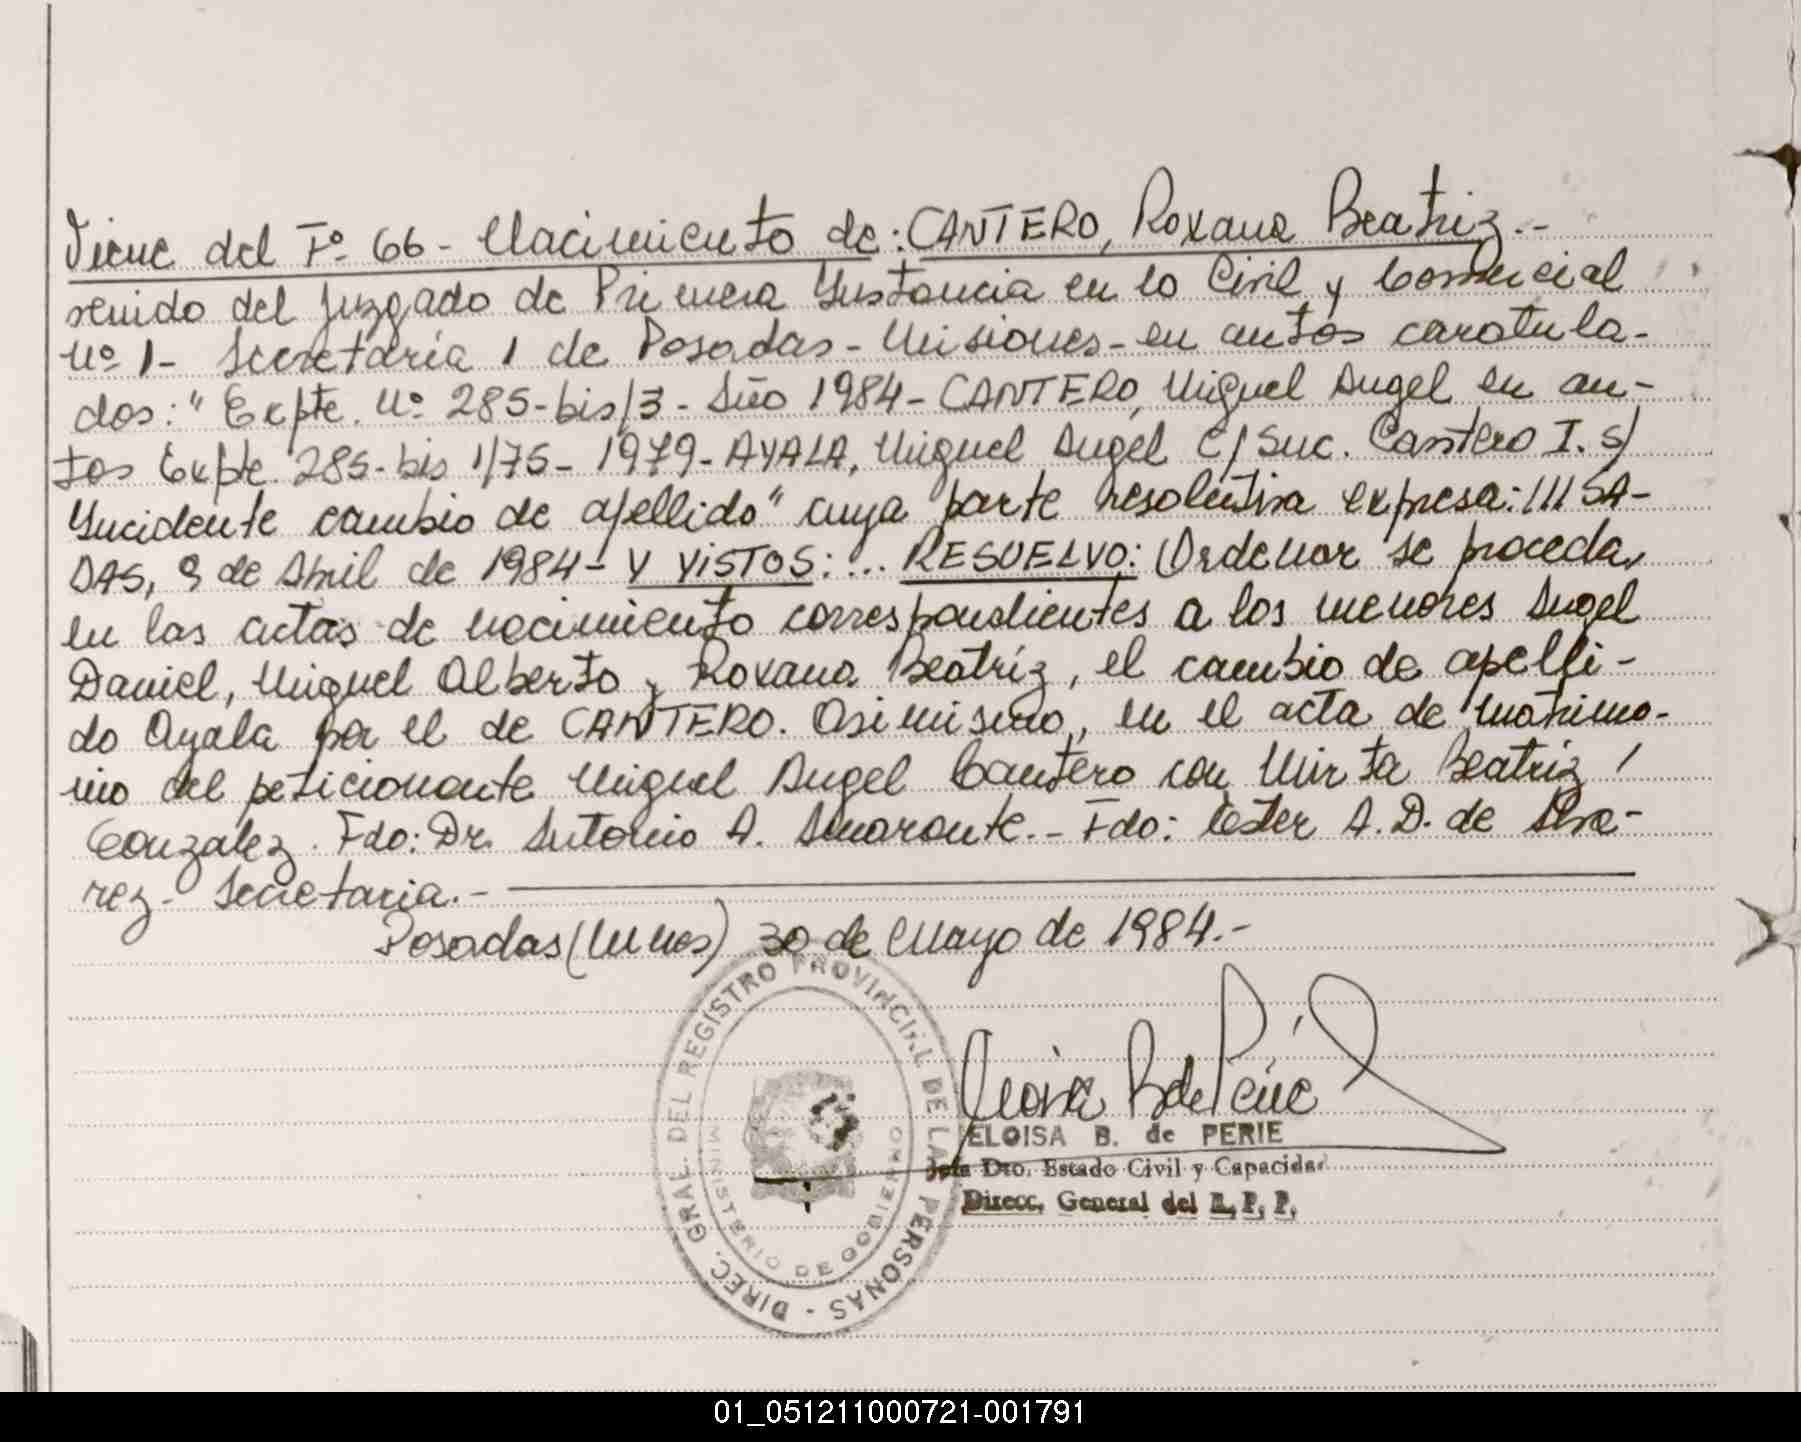 Viene del Fº 66 - Nacimiento de: CANTERO, Roxana Beatriz.--
venido del Juzgado de Primera Instancia en lo Civil y Comercial
Nº 1- Secretaría 1 de Posadas - Misiones - en autos caratula-
dos: " Expte. Nº 285-bis/3 - Año 1984 - CANTERO, Miguel Angel en au-
tos Expte. 285-bis 1/75 - 1979 - AYALA, Miguel Angel C/ Suc. Cantero I. S/
Incidente cambio de apellido" cuya parte resolutiva expresa: ///SA-
DAS, 9 de Abril de 1984 - Y VISTOS: ... RESUELVO: Ordenar se proceda,
en las actas de nacimiento correspondientes a los menores Angel
Daniel, Miguel Alberto y Roxana Beatríz, el cambio de apelli-
do Ayala por el de CANTERO. Asimismo, en el acta de matrimo-
nio del peticionante Miguel Angel Cantero con Mirta Beatriz /
González. Fdo: Dr. Antonio A. Amarante.- Fdo: Ester A. D. de Alva-
rez - Secretaria.-
Posadas (Mnes) 30 de Mayo de 1984.-
DIREC. GRAL. DEL REGISTRO PROVINCIAL DE LA PERSONAS -
MINISTERIO DE GOBIERNO
ELOISA B. de PERIE
Jefa Dto. Estado Civil y Capacidad
Direcc. General del R. P. P.
01_051211000721-001791